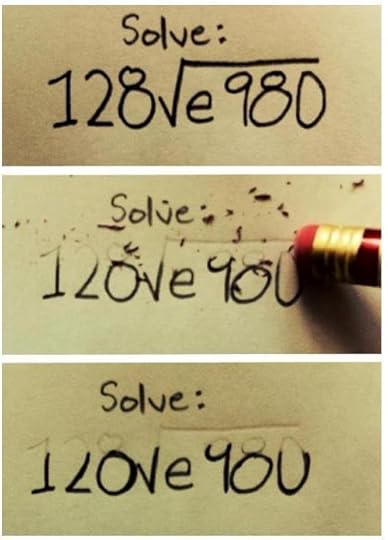 Solve:
128√e980
Solve:
128√e980
Solve:
I Love You